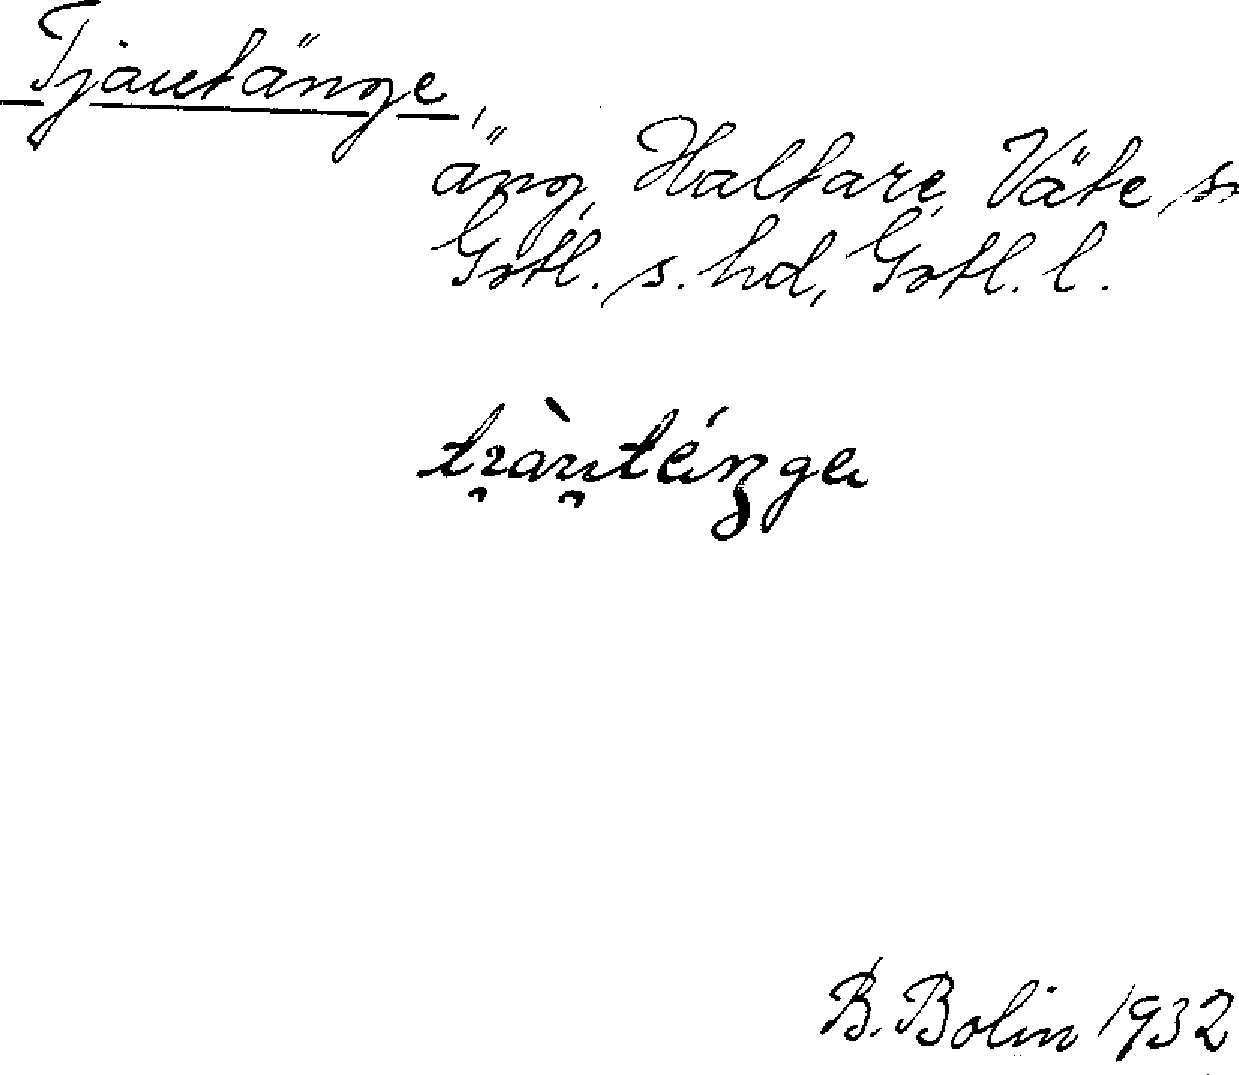 Tjautänge,
äng, Haltare, Väte s
Gotl. s. hd, Gotl. l.
B. Bolin 1932